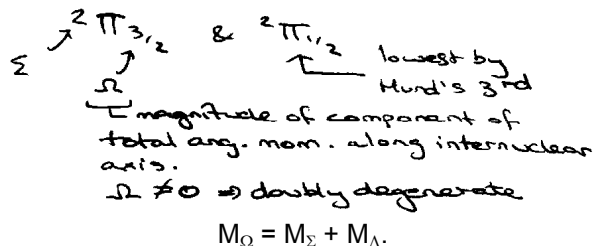 ²Π₃/₂ & ²Π₁/₂
Σ
Ω
lowest by
Hund's 3rd
magnitude of component of
total ang. mom. along internuclear
axis.
Ω ≠ 0 ⇒ doubly degenerate
M_Ω = M_Σ + M_Λ.